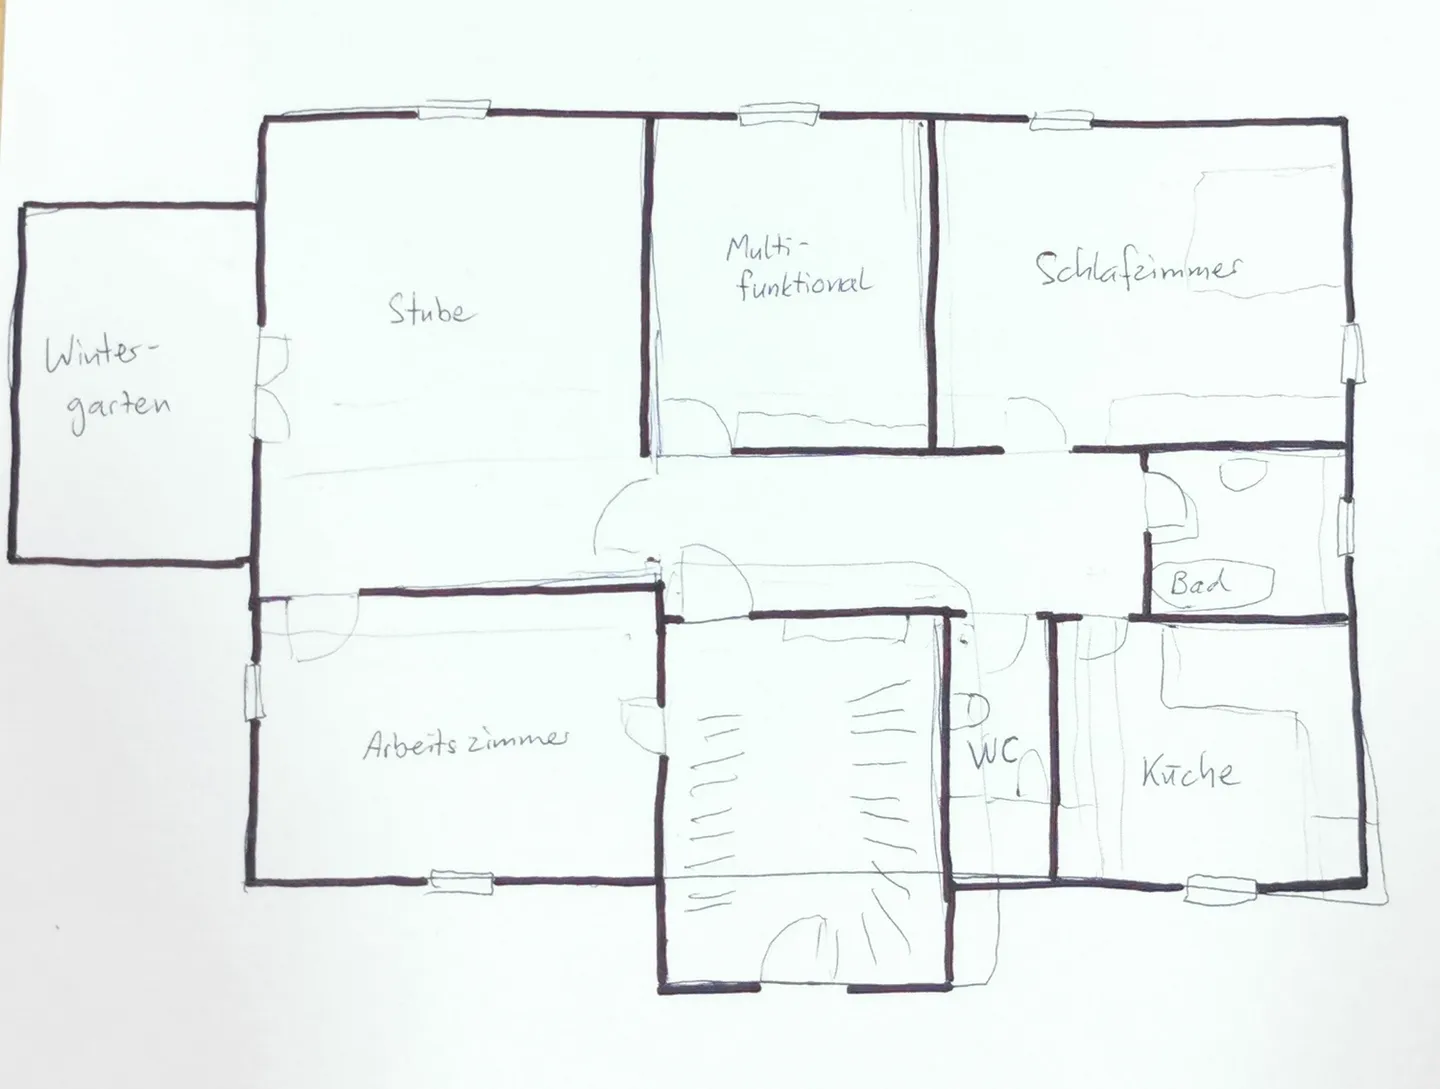 Multi-
funktional
Schlafzimmer
Stube
Winter-
garten
Bad
Arbeitszimmer
WC
Küche